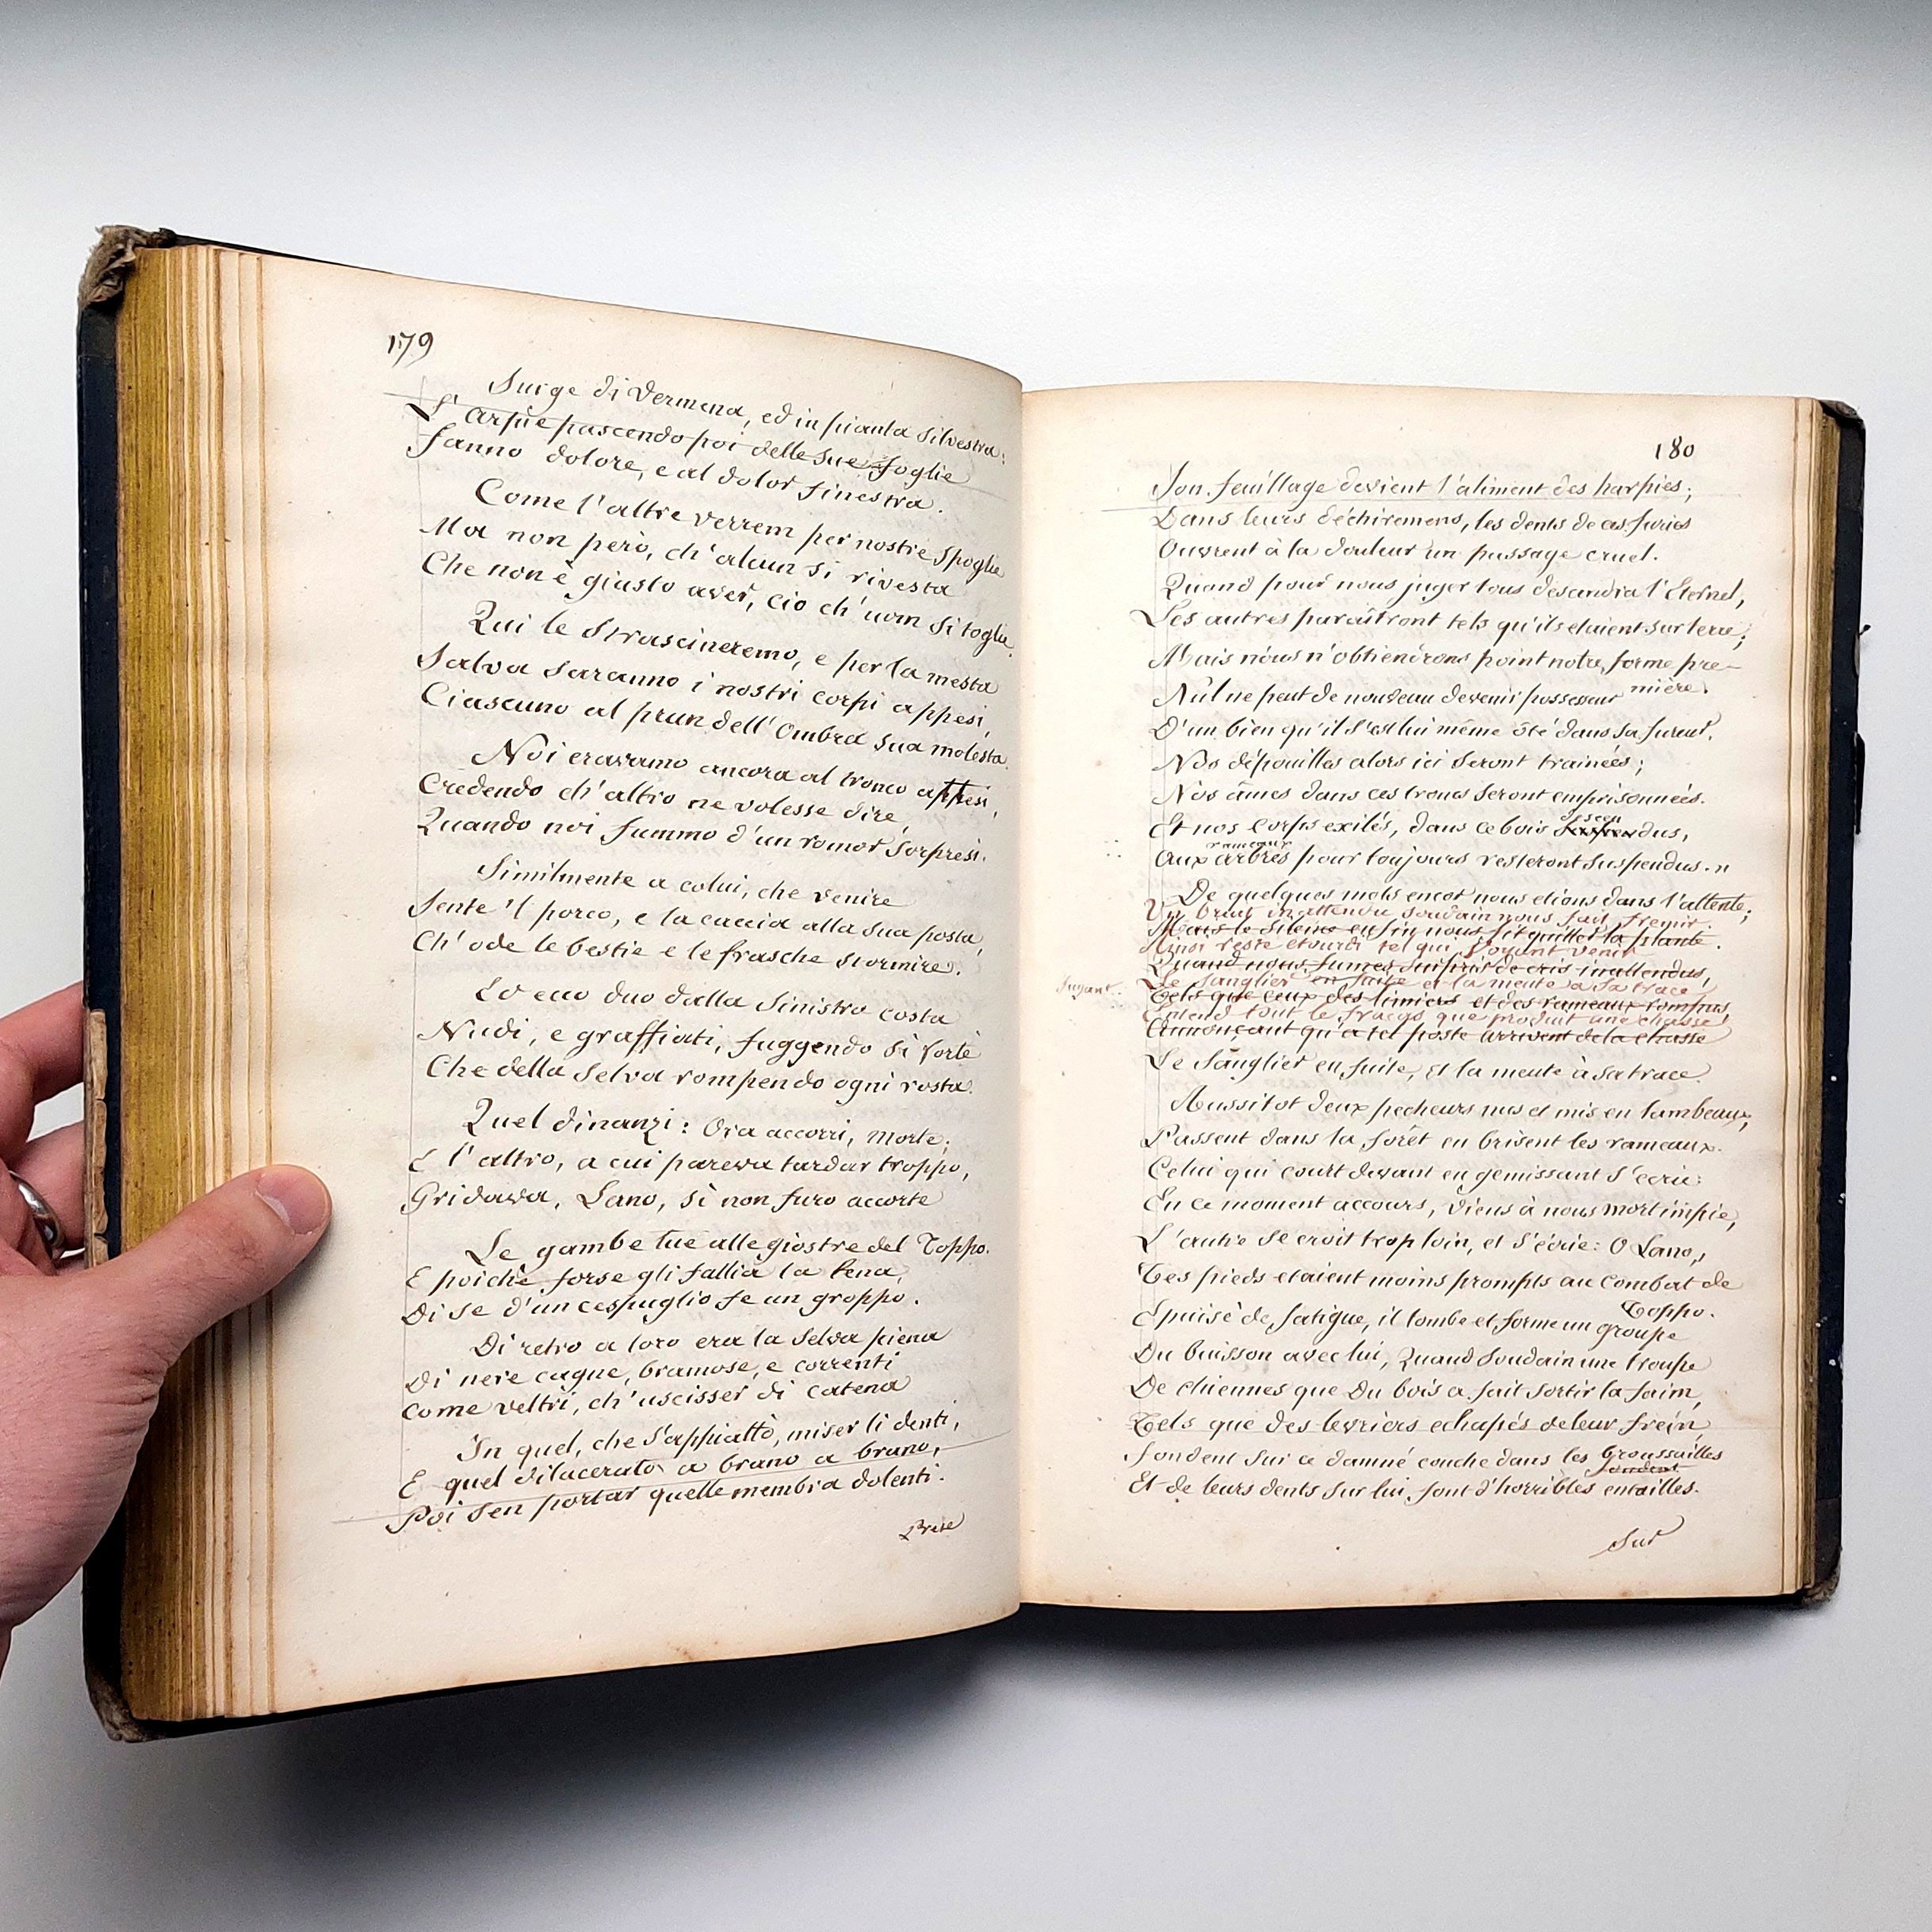 179
Surge di Vermena, ed in pianta silvestra:
L'arpie pascendo poi delle sue foglie
Fanno dolore, e al dolor finestra.
Come l'altre verrem per nostre spoglie
Ma non però, ch'alcun si rivesta
Che non è giusto aver, cio ch'uom si toglie.
Qui le strascineremo, e per la mesta
Salva saranno i nostri corpi appesi,
Ciascuno al prun dell'ombra sua molesta.
Noi eravamo ancora al tronco attesi,
Credendo ch'altro ne volesse dire,
Quando noi fummo d'un romor sorpresi.
Similmente a colui, che venire
Sente 'l porco, e la caccia alla sua posta,
Ch'ode le bestie e le frasche stormire.
Ed ecco duo dalla sinistra costa
Nudi, e graffiati, fuggendo sì forte
Che della selva rompendo ogni rosta.
Quel dinanzi: Ora accorri, morte;
E l'altro, a cui pareva tardar troppo,
Gridava, Lano, sì non furo accorte
Le gambe tue alle giostre del Toppo.
E poichè forse gli fallia la lena,
Di se d'un cespuglio fe un groppo.
Di retro a loro era la selva piena
Di nere cagne, bramose, e correnti
Come veltri, ch'uscisser di catena
In quel, che s'appiattò, miser li denti,
E quel dilacerato a brano a brano,
Poi sen portar quelle membra dolenti.
Prese
180
Son feuillage devient l'aliment des harpies;
Dans leurs déchiremens, les dents de ces furies
Ouvrent à la douleur un passage cruel.
Quand pour nous juger tous descendra l'Eternel,
Les autres paraîtront tels qu'ils etaient sur terre;
Mais nous n'obtiendrons point notre forme pre-
mière.
Nul ne peut de nouveau devenir possesseur
D'un bien qu'il s'est lui même ôté dans sa fureur.
Nos dépouilles alors ici seront trainées;
Nos âmes dans ces troncs seront emprisonnées.
descen
Et nos corps exilés, dans ce bois dus,
rameaux
Aux arbres pour toujours resteront suspendus. »
De quelques mots encor nous etions dans l'attente;
Un bruit inattendu soudain nous fait fremir.
Mais le silence enfin nous fit quitter la plante.
Ainsi reste etourdi tel qui voyant venir
Quand nous fumes surpris de cris inattendus,
fuyant
Le sanglier en fuite et la meute a sa trace
Tels que ceux des limiers et des rameaux rompus
Entend tout le fracas que produit une chasse
Annonçant qu'a tel poste arrivent de la chasse
Le sanglier en fuite, et la meute à sa trace.
Aussitot deux pecheurs nus et mis en lambeaux,
Passent dans la forêt en brisent les rameaux.
Celui qui court devant en gemissant s'ecrie:
En ce moment accours, viens à nous mort impie,
L'autre se croit trop loin, et s'écrie: O Lano,
Tes pieds etaient moins prompts au combat de
Toppo.
Epuisé de fatigue, il tombe et forme un groupe
Du buisson avec lui, quand soudain une troupe
De chiennes que du bois a fait sortir la faim,
Tels que des levriers echapés de leur frein,
Fondent sur ce damné couche dans les broussailles
fondent
Et de leurs dents sur lui font d'horribles entailles.
Sur